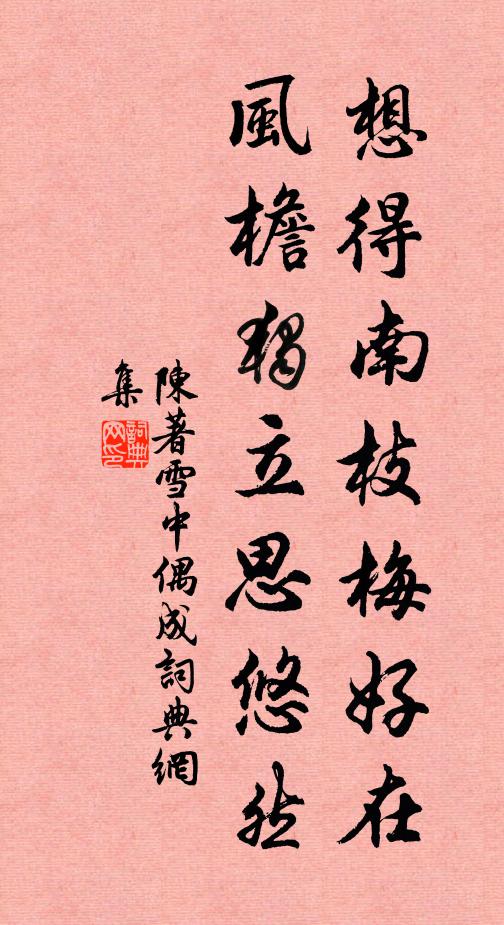 想得南枝梅好在
風檐獨立思悠然
陳著雪中偶成詞典網
集
詞典
网印